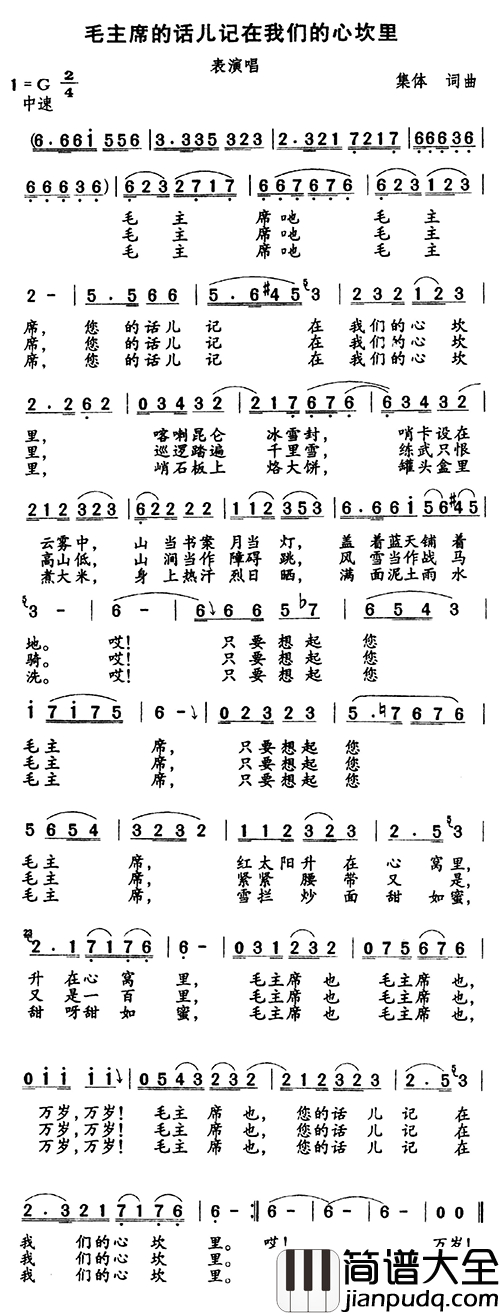 毛主席的话儿记在我们的心坎里
表演唱
1=G 2/4
集体 词曲
中速
(6.661̇ 556 | 3.335 325 | 2.321 7217 | 66636 |
66636) | 6232717 | 667676 | 623123 |
毛 主 席吔 毛 主
毛 主 席吔 毛 主
毛 主 席吔 毛 主
2 - | 5.566 | 5.6#45 3 | 232123 |
席, 您的话儿记 在我们的心坎
席, 您的话儿记 在我们的心坎
席, 您的话儿记 在我们的心坎
2.262 | 03432 | 217676 | 63432 |
里, 喀喇昆仑 冰雪封, 哨卡设在
里, 巡逻踏遍 千里雪, 练武只恨
里, 峭石板上 烙大饼, 罐头盒里
212323 | 2262 | 112353 | 6.661̇56#45 |
云雾中, 山当书案月当灯, 盖着蓝天铺着
高山低, 山涧当作障碍跳, 风雪当作战马
煮大米, 身上热汗烈日晒, 满面泥土雨水
3 - | 6 - | 6 665♭7 | 6543 |
地。 哎! 只要想起您
骑。 哎! 只要想起您
洗。 哎! 只要想起您
1̇71̇75 | 6 - | 02323 | 5.♮7676 |
毛主席, 只要想起您
毛主席, 只要想起您
毛主席, 只要想起您
5654 | 3232 | 112323 | 2.53 |
毛主席, 红太阳升在心窝里,
毛主席, 紧紧腰带又是,
毛主席, 雪拦炒面甜如蜜,
2.17176 | 6 - | 031232 | 075676 |
升在心窝里, 毛主席也 毛主席也
又是一百里, 毛主席也 毛主席也,
甜呀甜如蜜, 毛主席也 毛主席也,
01̇1̇ 1̇1̇ | 0543232 | 212323 | 2.53 |
万岁,万岁! 毛主席也, 您的话儿记在
万岁,万岁! 毛主席也, 您的话儿记在
万岁,万岁! 毛主席也, 您的话儿记在
2.3217176 | 6 - :‖ 6 - | 6 - | 00 ‖
我们的心坎里。 哎! 万岁!
我们的心坎里。
我们的心坎里。
简谱大全
jianpudq.com